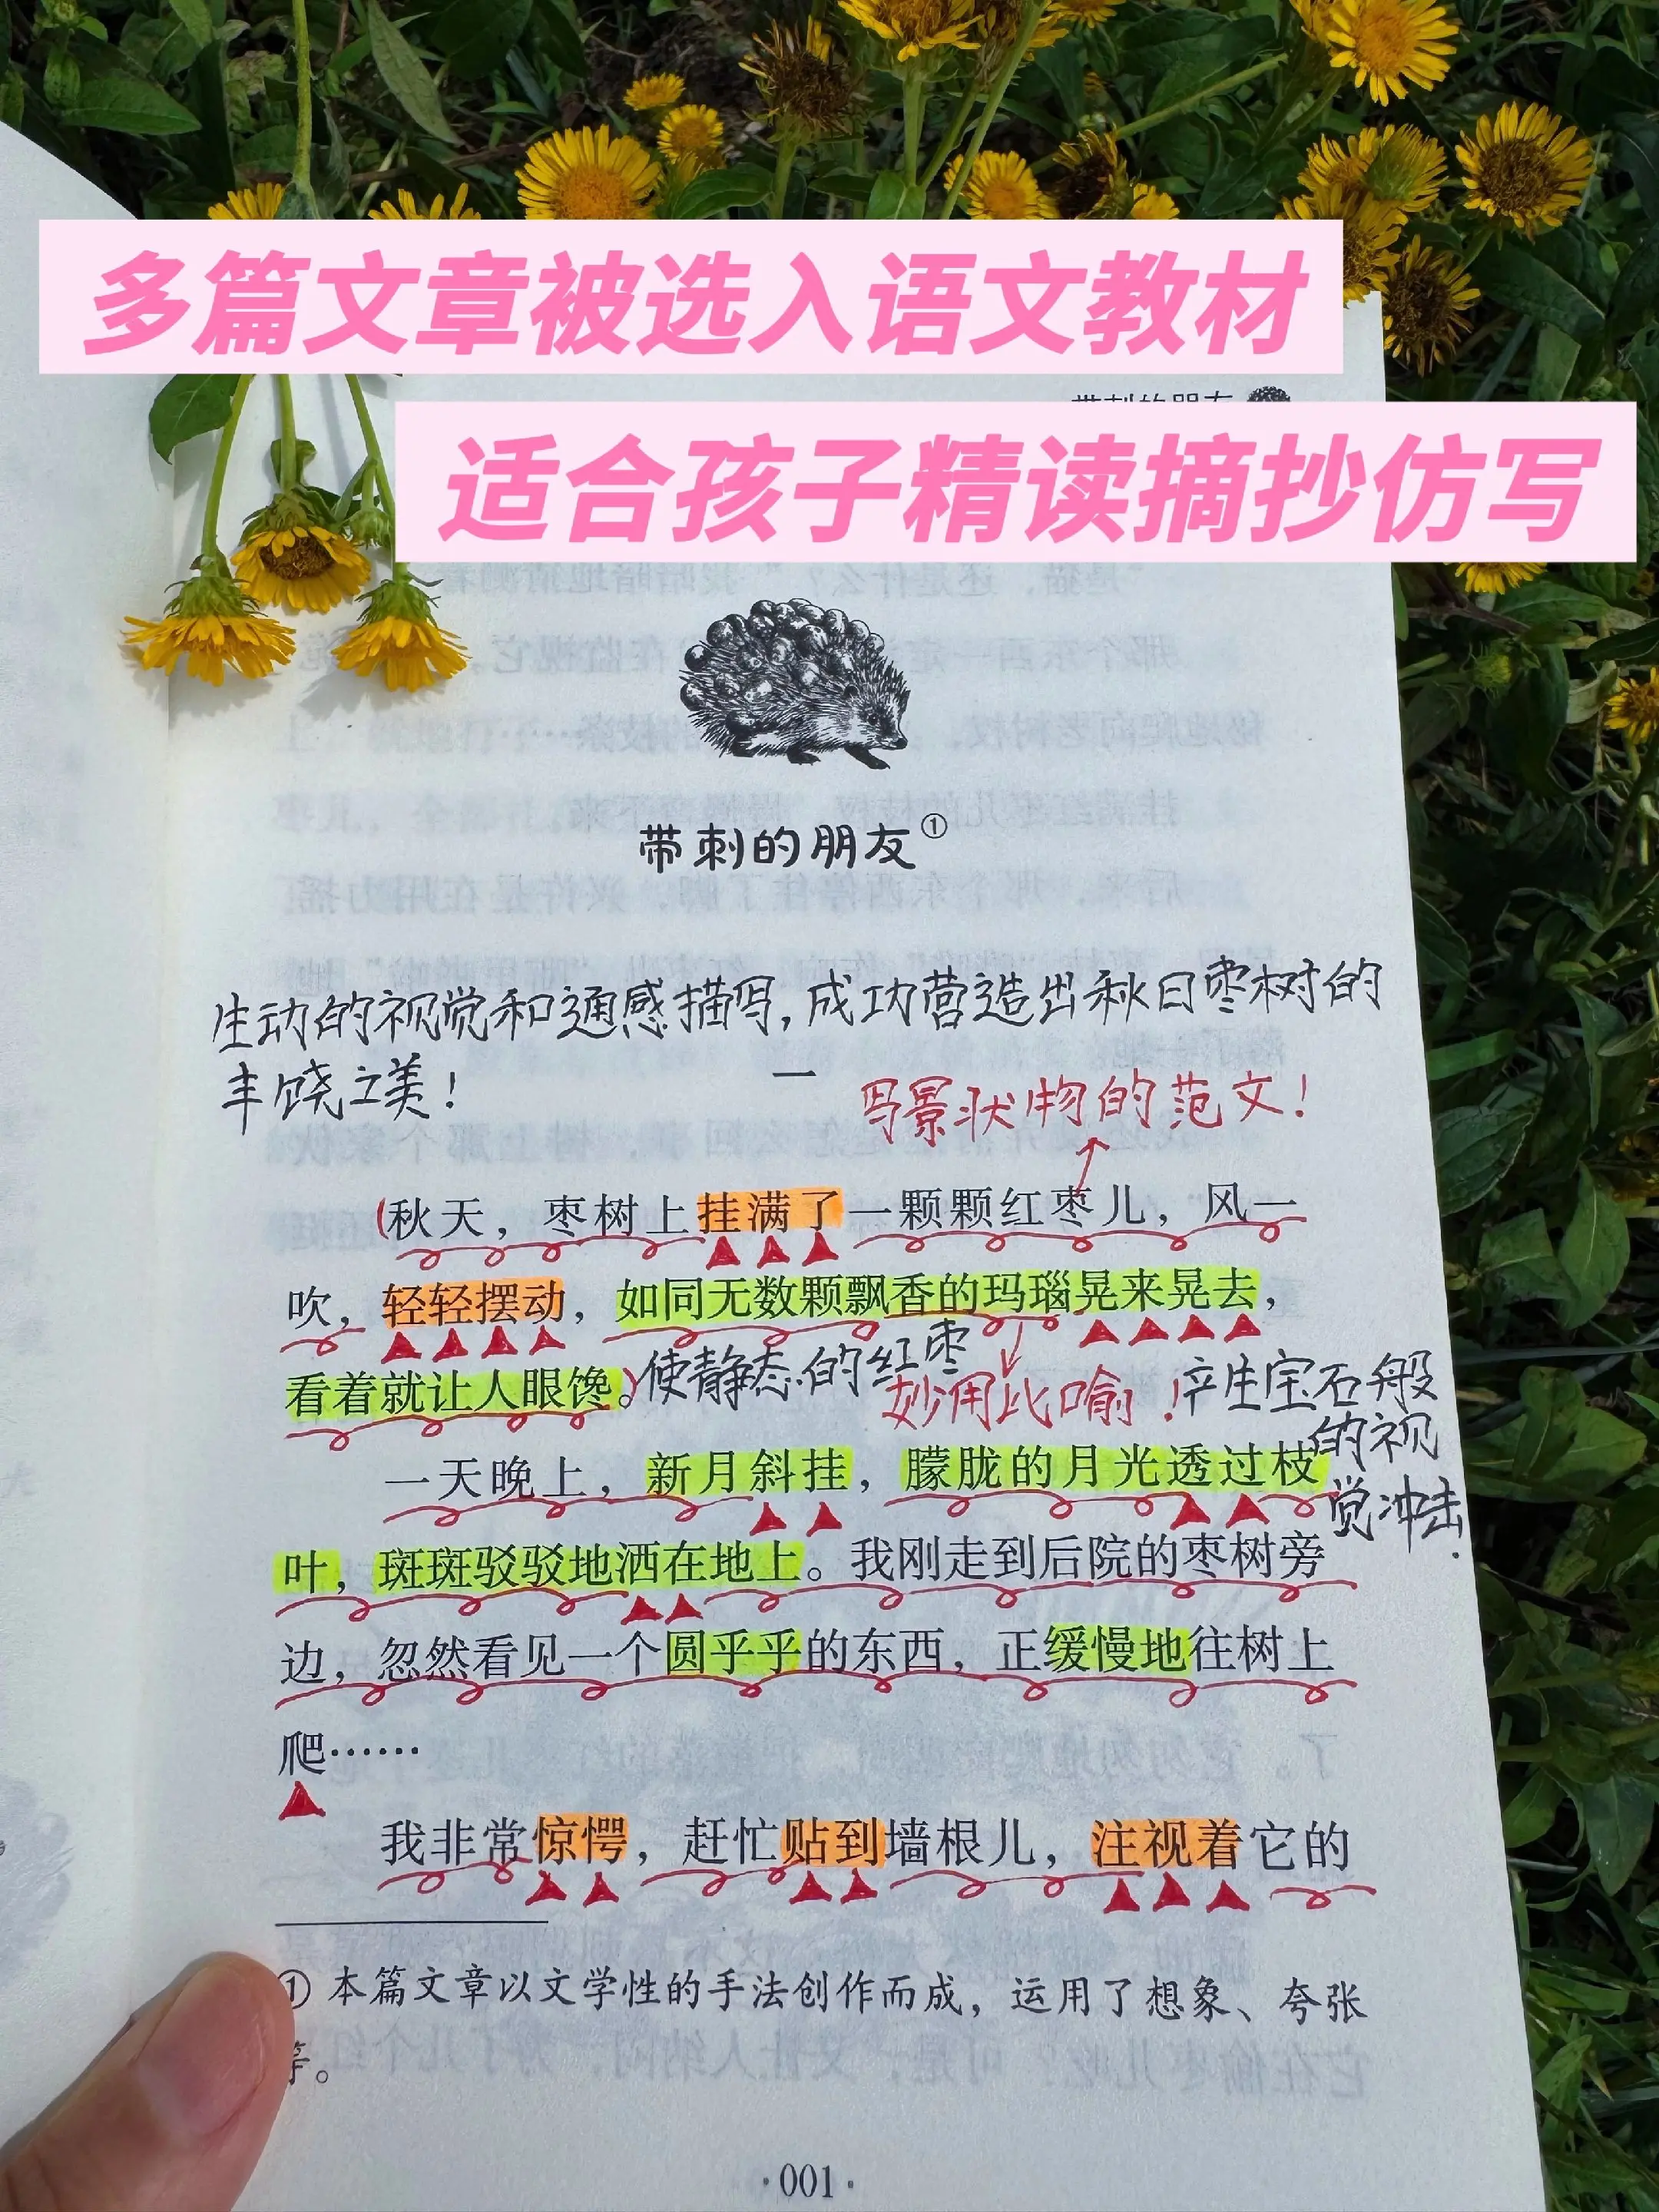 多篇文章被选入语文教材
适合孩子精读摘抄仿写
带刺的朋友
带刺的朋友①
生动的视觉和通感描写,成功营造出秋日枣树的
丰饶之美!
一
写景状物的范文!
(秋天，枣树上挂满了一颗颗红枣儿，风一
吹，轻轻摆动，如同无数颗飘香的玛瑙晃来晃去，
看着就让人眼馋。)
使静态的红枣
妙用比喻!
产生宝石般
的视
觉冲击.
一天晚上，新月斜挂，朦胧的月光透过枝
叶，斑斑驳驳地洒在地上。我刚走到后院的枣树旁
边，忽然看见一个圆乎乎的东西，正缓慢地往树上
爬……
我非常惊愕，赶忙贴到墙根儿，注视着它的
① 本篇文章以文学性的手法创作而成，运用了想象、夸张
等。
·001·